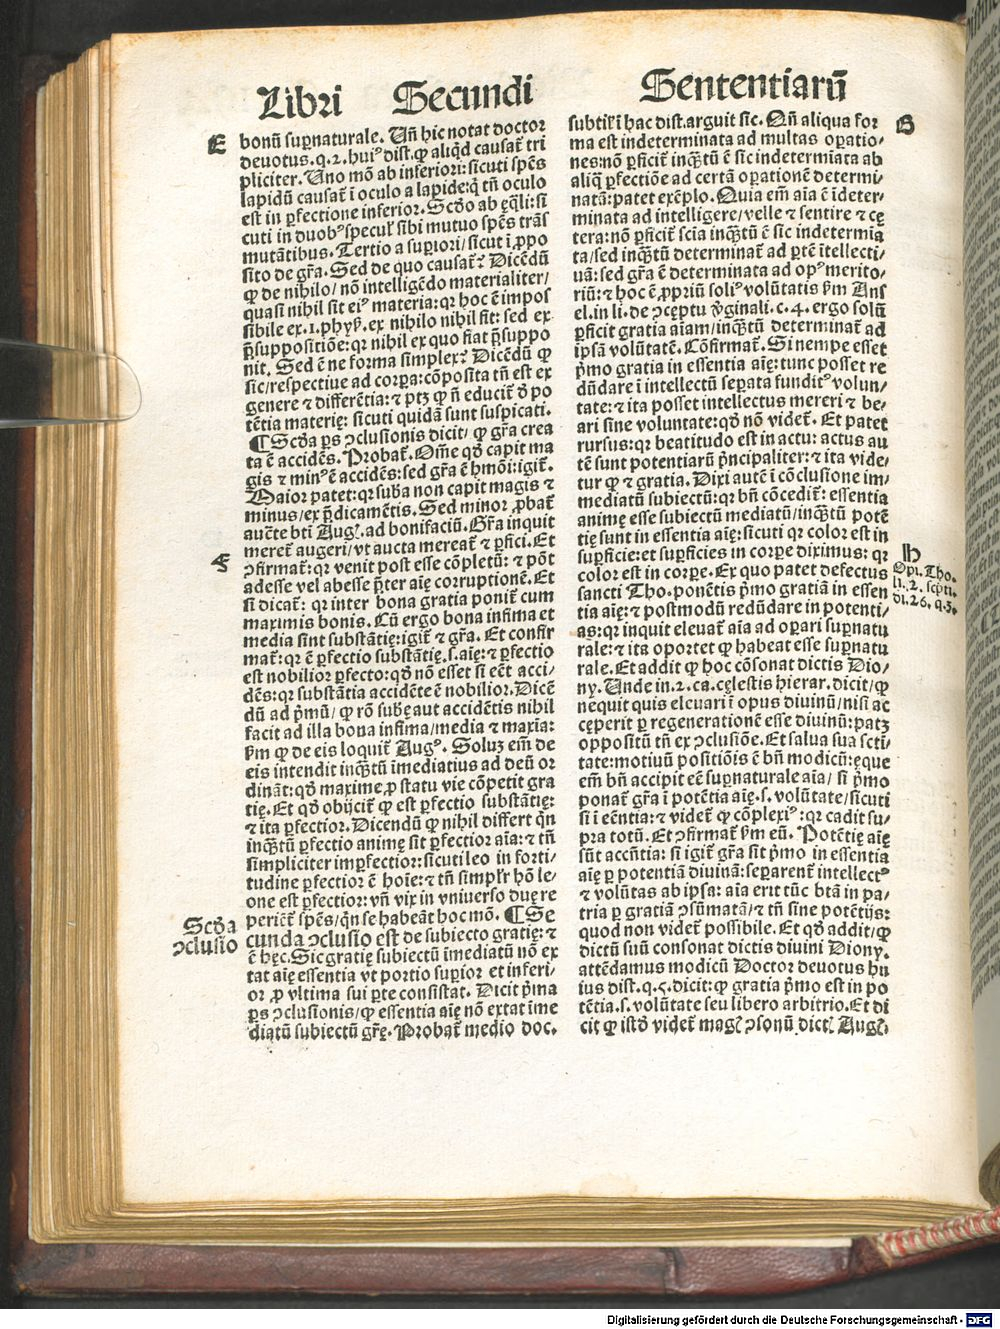 Libri Secundi Sententiarū
E
bonū suꝑnaturale. Uñ hic notat doctor
deuotus. q. 2. huiꝰ dist. ꝙ aliqd causat̄ tri
pliciter. Uno mō ab inferiori: sicuti spēs
lapidū causat̄ ī oculo a lapide: q̄ tñ oculo
est in ꝑfectione inferior. Scd̄o ab eq̄li: si
cuti in duobꝰ speculꝭ sibi mutuo spēs trās
mutātibus. Tertio a suꝑiori / sicut ī ꝓpo
sito de gr̄a. Sed de quo causat̄? Dicēdū
ꝙ de nihilo / nō intelligēdo materialiter /
quasi nihil sit eiꝰ materia: qꝛ hoc ē impos
sibile ex. 1. phyꝭ. ex nihilo nihil fit: sed ex
p̄suppositiōe: qꝛ nihil ex quo fiat p̄suppo
nit. Sed ē ne forma simplex? Dicēdū ꝙ
sic / respectiue ad corꝑa: cōposita tñ est ex
genere ⁊ differētia: ⁊ ptꝫ ꝙ ñ educit̄ d̄ po
tētia materię: sicuti quidā sunt suspicati.
¶ Scd̄a ꝑs ↄclusionis dicit / ꝙ gr̄a crea
ta ē accidēs. Probat̄. Om̄e qd̄ capit ma
gis ⁊ minꝰ ē accidēs: sed gr̄a ē hmōi: igit̄.
Maior patet: qꝛ sub̄a non capit magis ⁊
minus / ex p̄dicamētis. Sed minor ꝓbat̄
auc̄te bt̄i Augꝭ. ad bonifaciū. Gr̄a inquit
meret̄ augeri / vt aucta mereat̄ ⁊ ꝑfici. Et
F
ↄfirmat̄: qꝛ venit post esse cōpletū: ⁊ pōt
adesse vel abesse p̄ter aię corruptionē. Et
si dicat̄: qꝛ inter bona gratia ponit̄ cum
maximis bonis. Cū ergo bona infima et
media sint substātię: igit̄ ⁊ gr̄a. Et confir
mat̄: qꝛ ē ꝑfectio substātię. s. aię: ⁊ ꝑfectio
est nobilior ꝑfecto: qd̄ nō esset si eēt acci⸗
dēs: qꝛ substātia accidēte ē nobilior. Dicē
dū ad p̄mū / ꝙ rō sub̄ę aut accidētis nihil
facit ad illa bona infima / media ⁊ maxīa:
ẜm ꝙ de eis loquit̄ Augꝰ. Soluꝫ em̄ de
eis intendit inq̄tū īmediatius ad deū or
dināt: qd̄ maxime ꝓ statu vie cōpetit gra
tię. Et qd̄ obijcit̄ ꝙ est ꝑfectio substātię:
⁊ ita ꝑfectior. Dicendū ꝙ nihil differt qn̄
inq̄tū ꝑfectio animę sit ꝑfectior aīa: ⁊ tñ
simpliciter imꝑfectior: sicuti leo in forti⸗
tudine ꝑfectior ē hoīe: ⁊ tñ simplr̄ hō le⸗
one est ꝑfectior: vñ vix in vniuerso duę re
periēt̄ spēs / qn̄ se habeāt hoc mō. ¶ Se
Scd̄a
ↄclusio
cunda ↄclusio est de subiecto gratię: ⁊
ē hęc. Sic gratię subiectū īmediatū nō ex
tat aię essentia vt portio suꝑior et inferi⸗
or ꝓ vltima sui ꝑte consistat. Dicit p̄ma
ꝑs ↄclusionis / ꝙ essentia aię nō extat īme
diatū subiectū gr̄ę. Probat̄ medio doc.
subtilꝭ ī hac dist. arguit sic. Qñ aliqua for
G
ma est indeterminata ad multas oꝑatio⸗
nes: nō ꝑficit̄ inq̄tū ē sic indetermīata ab
aliq̄ ꝑfectiōe ad certā oꝑationē determi⸗
natā: patet exēplo. Quia em̄ aīa ē īdeter⸗
minata ad intelligere / velle ⁊ sentire ⁊ cę
tera: nō ꝑficit̄ sciā inq̄tū ē sic indetermīa
ta / sed inq̄tū determinat̄ ad ꝑtē ītellecti⸗
uā: sed gr̄a ē determinata ad opꝰ merito⸗
riū: ⁊ hoc ē ꝓpriū soliꝰ volūtatis ẜm Ans
el. in li. de ↄceptu v̄ginali. c. 4. ergo solū
ꝑficit gratia aīam / inq̄tū determinat̄ ad
ipsā volūtatē. Cōfirmat̄. Si nempe esset
p̄mo gratia in essentia aię: tunc posset re
dūdare ī intellectū seꝑata funditꝰ volun⸗
tate: ⁊ ita posset intellectus mereri ⁊ be⸗
ari sine voluntate: qd̄ nō videt̄. Et patet
rursus: qꝛ beatitudo est in actu: actus au
tē sunt potentiarū p̄ncipaliter: ⁊ ita vide⸗
tur ꝙ ⁊ gratia. Dixi autē ī cōclusione im⸗
mediatū subiectū: qꝛ bñ cōcedit̄: essentia
animę esse subiectū mediatū / inq̄tū potē
tię sunt in essentia aię: sicuti qꝛ color est in
suꝑficie: et suꝑficies in corꝑe diximus: qꝛ
H
Opi. Tho.
color est in corꝑe. Ex quo patet defectus
di. 26. q. 3.
sancti Tho. ponētis p̄mo gratiā in essen
tia aię: ⁊ postmodū redūdare in potenti⸗
as: qꝛ inquit eleuat̄ aīa ad oꝑari suꝑnatu
rale: ⁊ ita oportet ꝙ habeat esse suꝑnatu
rale. Et addit ꝙ hoc cōsonat dictis Dio⸗
ny. Unde in. 2. ca. cęlestis hierar. dicit / ꝙ
nequit quis eleuari ī opus diuinū / nisi ac
cęperit ꝑ regenerationē esse diuinū: patꝫ
oppositū tñ ex ↄclusiōe. Et salua sua scti⸗
tate: motiuū positiōis ē bñ modicū: ęque
em̄ bñ accipit eē suꝑnaturale aīa / si p̄mo
ponat̄ gr̄a ī potētia aię. s. volūtate / sicuti
si ī eēntia: ⁊ videt̄ ꝙ cōplexiꝰ: qꝛ cadit su⸗
pra totū. Et ↄfirmat̄ ẜm eū. Potētię aię
sūt accñtia: si igit̄ gr̄a sit p̄mo in essentia
aię ꝑ potentiā diuinā: seꝑarent̄ intellectꝰ
⁊ volūtas ab ipsa: aīa erit tūc bt̄ā in pa⸗
tria ꝑ gratiā ↄsūmatā / ⁊ tñ sine potētijs:
quod non videt̄ possibile. Et qd̄ addit / ꝙ
dictū suū consonat dictis diuini Diony.
attēdamus modicū Doctor deuotus hu
ius dist. q. 5. dicit: ꝙ gratia p̄mo est in po
tētia. s. volūtate seu libero arbitrio. Et di
cit ꝙ istd̄ videt̄ magꝭ ↄsonū dictꝭ Augꝭ.
Digitalisierung gefördert durch die Deutsche Forschungsgemeinschaft - DFG